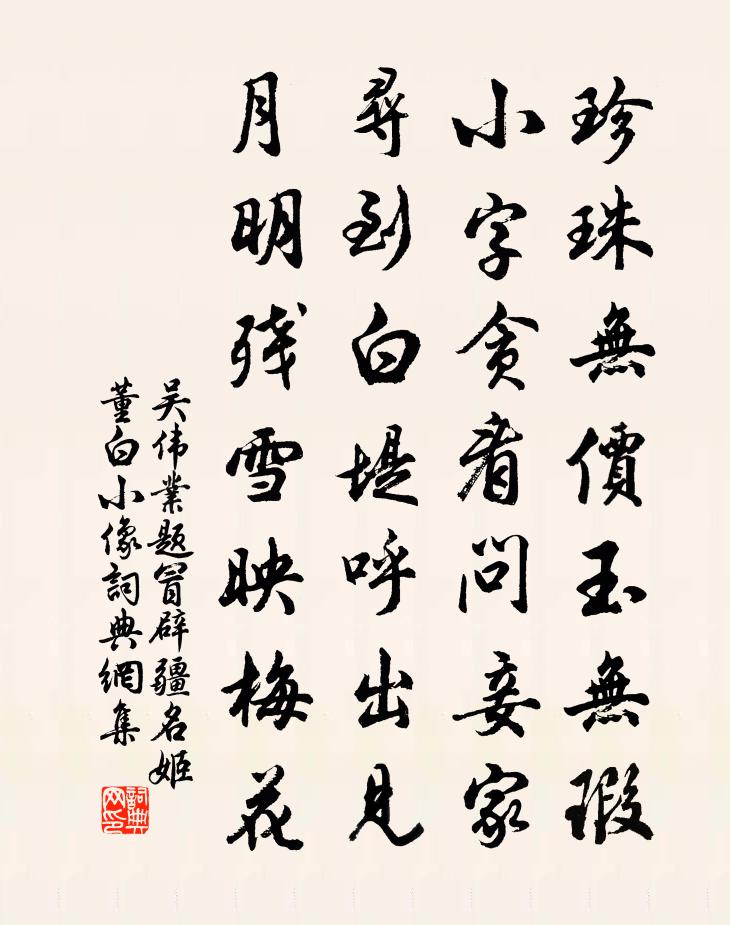 珍珠無價玉無瑕
小字貪看問妾家
尋到白堤呼出見
月明残雪映梅花
吴伟業题冒辟疆名姬
董白小像詞典網集
詞典网印